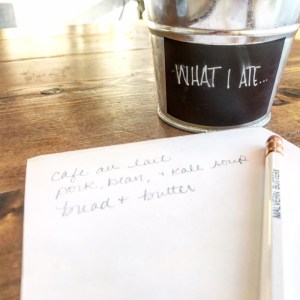 WHAT I ATE...
cafe au lait
pork, bean, + kale soup
bread + butter
MALVERN BUTTERY